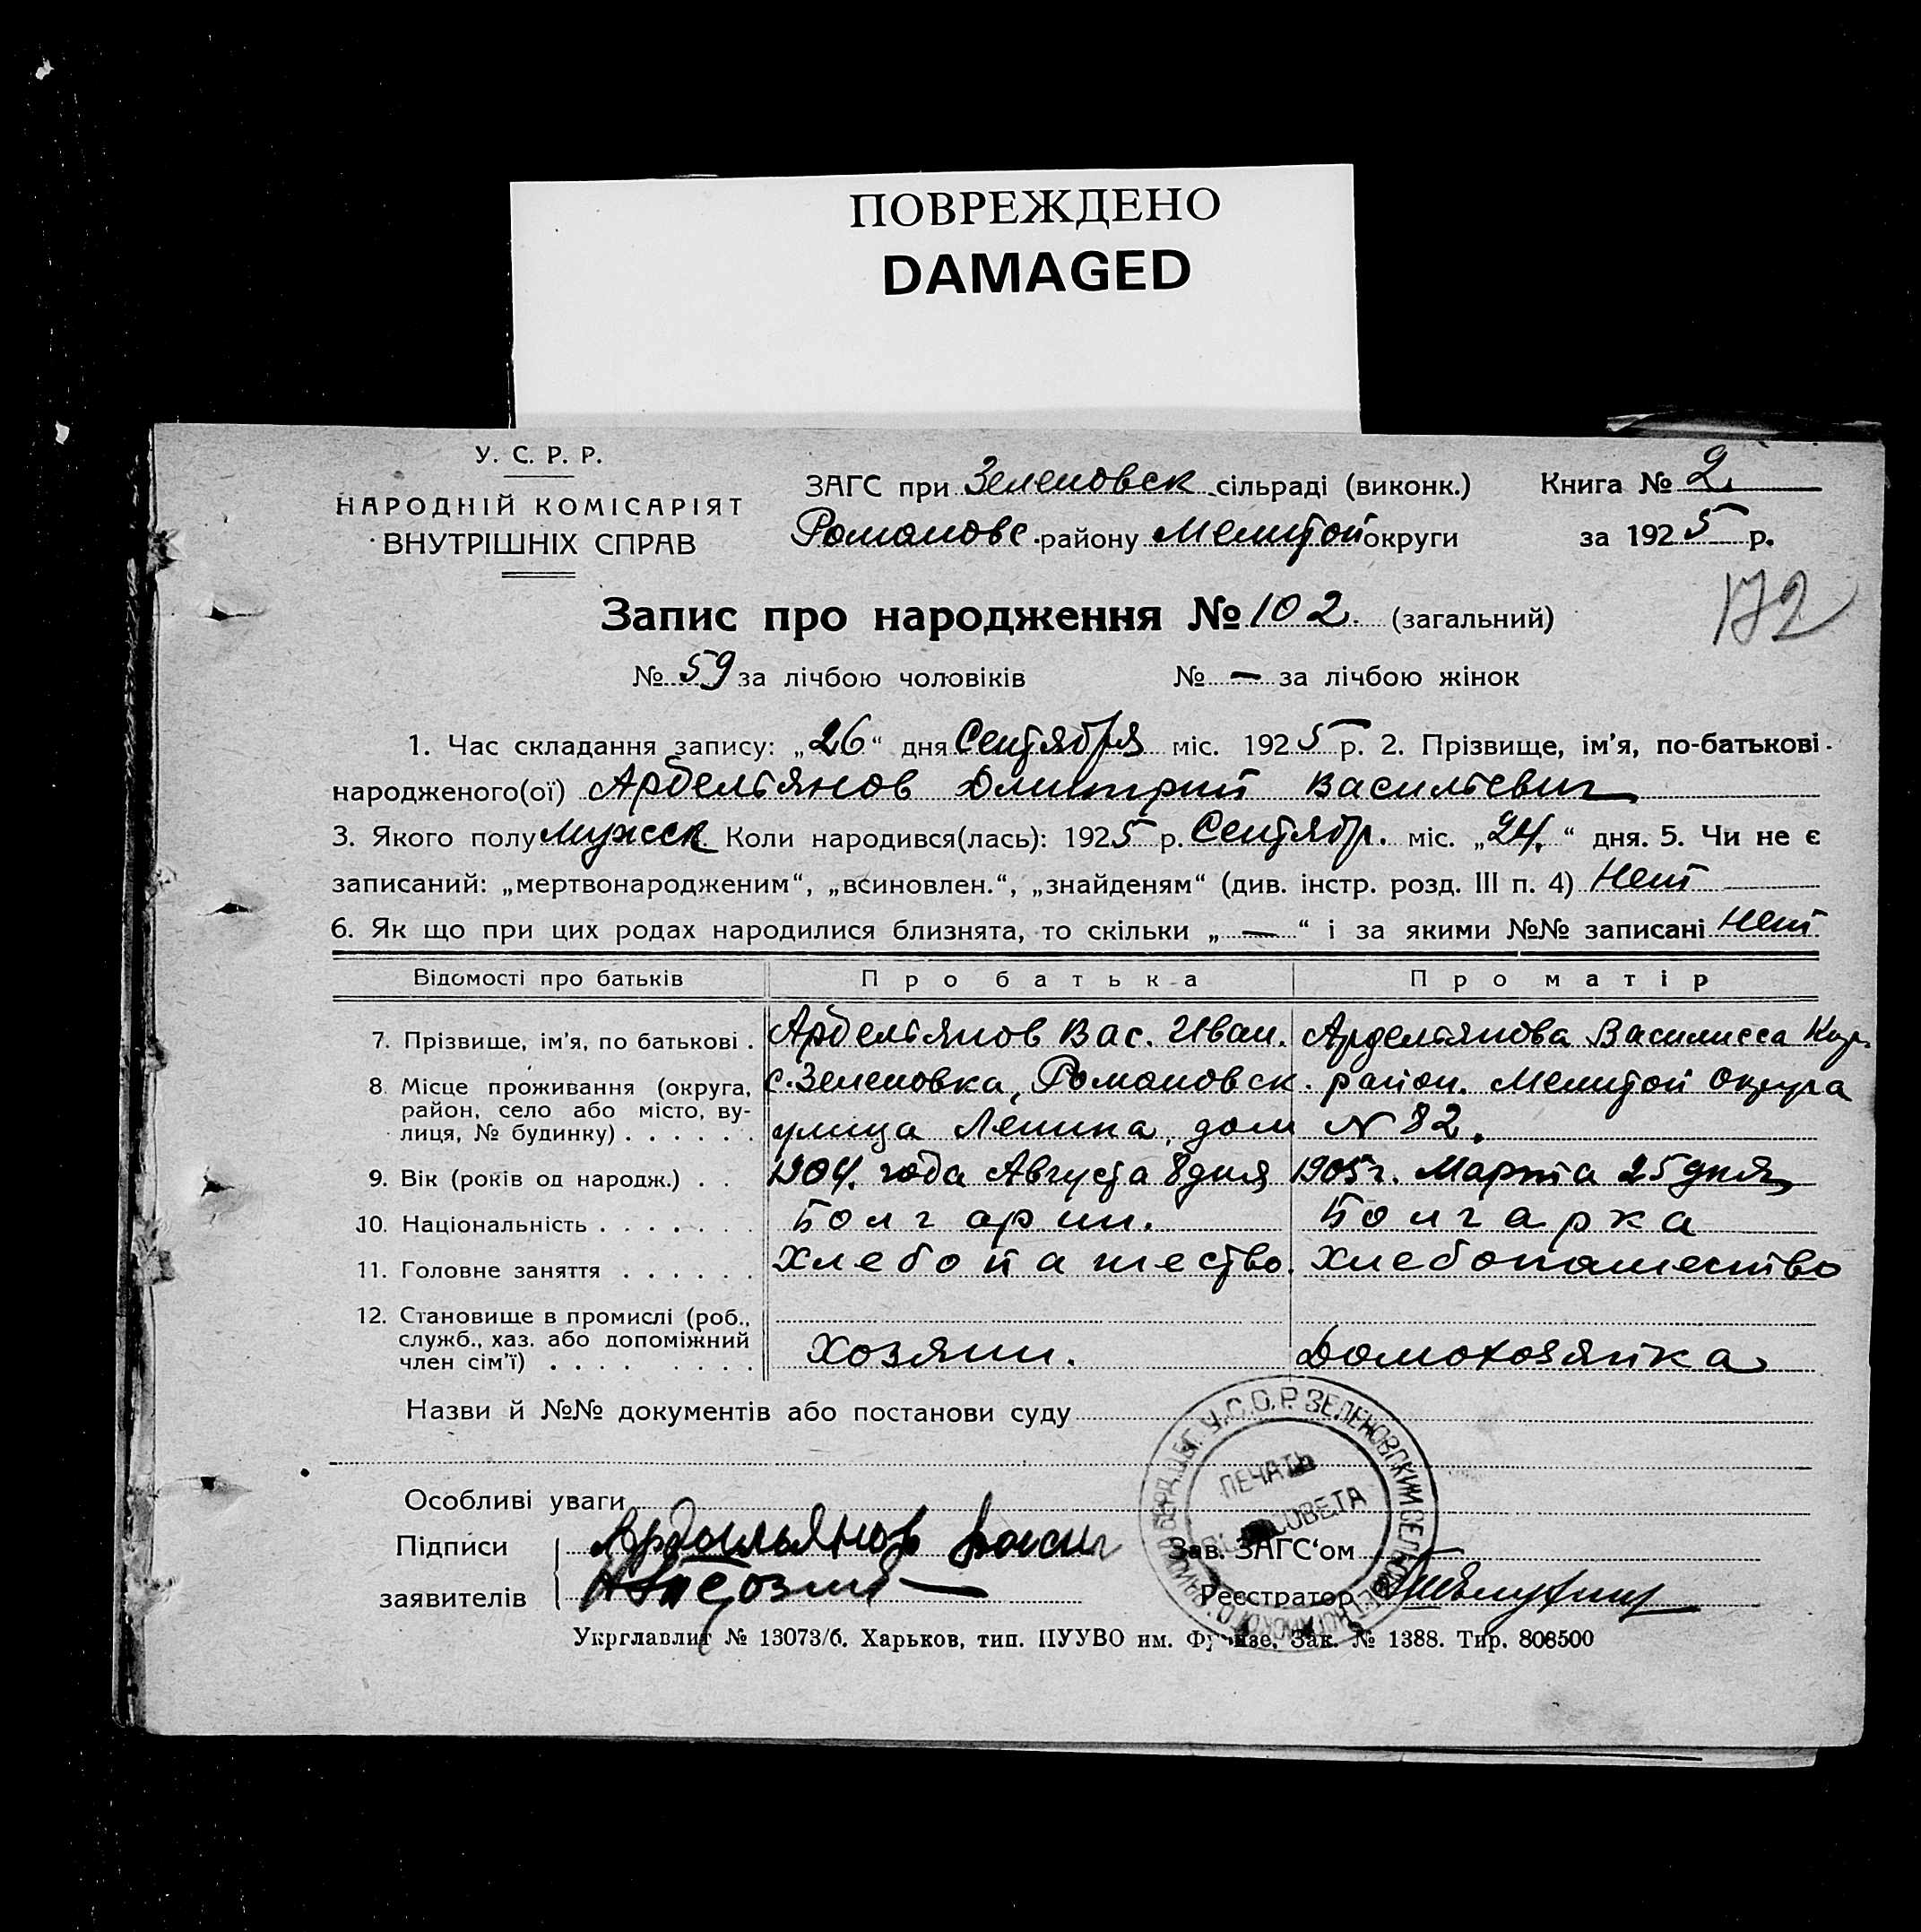 ПОВРЕЖДЕНО
DAMAGED
У. С. Р. Р.
НАРОДНІЙ КОМІСАРІЯТ
ВНУТРІШНІХ СПРАВ
ЗАГС при Зеленовск. сільраді (виконк.) Книга № 2.
Романовс. району Мелитой округи за 1925 р.
172
Запис про народження № 102. (загальний)
№ 59 за лічбою чоловіків № — за лічбою жінок
1. Час складання запису: „26“ дня Сентября міс. 1925 р. 2. Прізвище, ім’я, по-батькові
народженого(ої) Арделтянов Дмитрий Василиевич
3. Якого полу Мужск. Коли народився(лась): 1925 р. Сентябр. міс. „24.“ дня. 5. Чи не є
записаний: „мертвонародженим“, „всиновлен.“, „знайденям“ (див. інстр. розд. III п. 4) Нет
6. Як що при цих родах народилися близнята, то скільки „ — “ і за якими №№ записані Нет
Відомості про батьків Про батька Про матір
7. Прізвище, ім’я, по батькові . Арделтянов Вас. Иван. Арделтянова Василисса Кир.
8 Місце проживання (округа, с. Зеленовка, Романовск. район. Мелитой округа
район, село або місто, ву-
лиця, № будинку) . . . . . . улица Ленина, дом N 82.
9. Вік (років од народж.) . . 1904. года Августа 8 дня 1905 г. Марта 25 дня
10. Національність . . . . . . . Болгарин. Болгарка
11. Головне заняття . . . . . . Хлебопашество. Хлебопашество
12. Становище в промислі (роб.,
служб., хаз. або допоміжний
член сім’ї) . . . . . . . . Хозяин. Домохозяйка
Назви й №№ документів або постанови суду
Особливі уваги
Підписи Ардельянов Васил
заявителів
Зав. ЗАГС‘ом
Реєстратор
У.С.С.Р. ЗЕЛЕНОВСКИЙ СЕЛЬСОВЕТ
ПЕЧАТЬ
СЕЛЬСОВЕТА
Укрглавлит № 13073/6. Харьков, тип. ПУУВО им. Фрунзе. Зак. № 1388. Тир. 808500